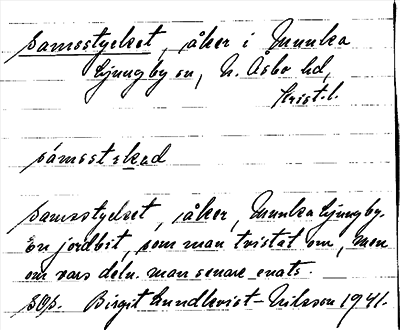 Samsstycket, åker i Munka
Ljungby sn, N. Åsbo hd,
Krist. l.
såmsstɛkəd
Samsstycket, åker, Munka Ljungby.
En jordbit, som man tvistat om, men
om vars deln. man senare enats.
SOp. Birgit Lundkvist-Nilsson 1941.